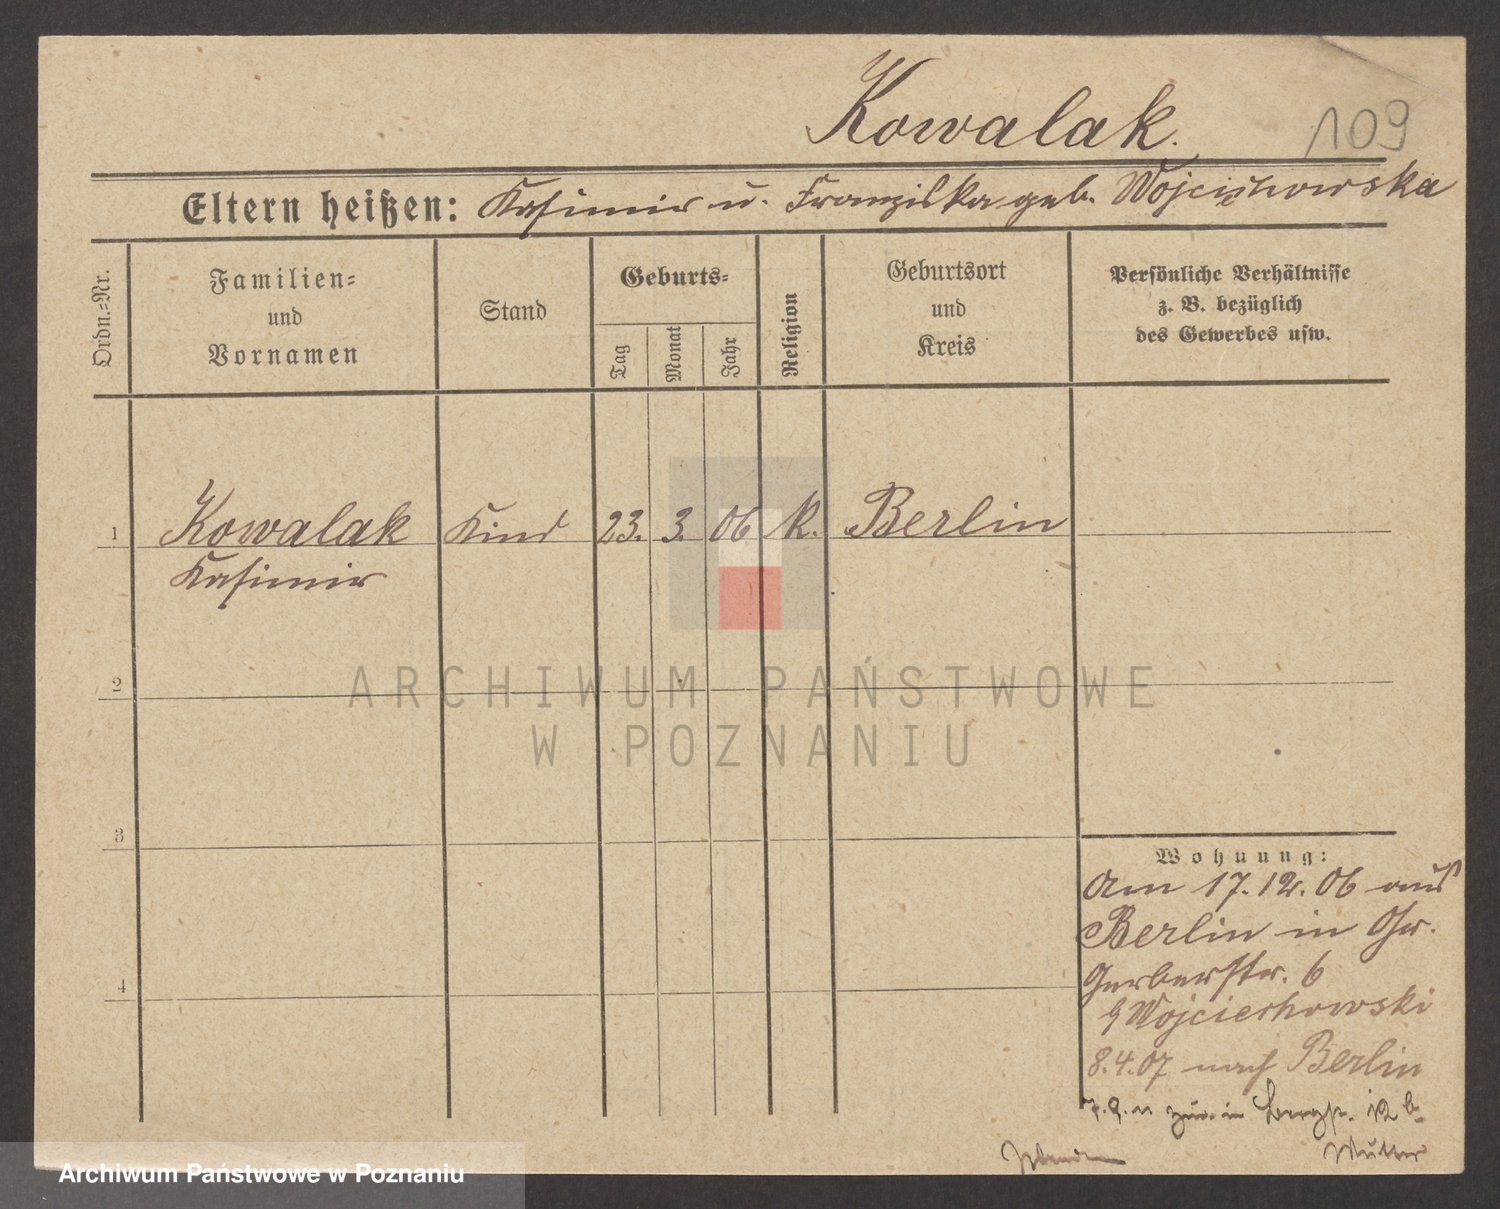 Kowalak.
109
Eltern heißen: Kasimir u. Franziska geb. Wojciechowska
Ordn.-Nr.
Familien-
und
Vornamen
Stand
Geburts-
Tag
Monat
Jahr
Religion
Geburtsort
und
Kreis
Persönliche Verhältnisse
z. B. bezüglich
des Gewerbes usw.
1 Kowalak Kind 23. 3. 06 k. Berlin
Kasimir
2
ARCHIWUM PAŃSTWOWE
W POZNANIU
3
4
Wohnung:
Am 17.12.06 aus
Berlin in
Gerberstr. 6
Wojciechowski
8.4.07 nach Berlin
7.9.11 zur. in
Mutter
Archiwum Państwowe w Poznaniu